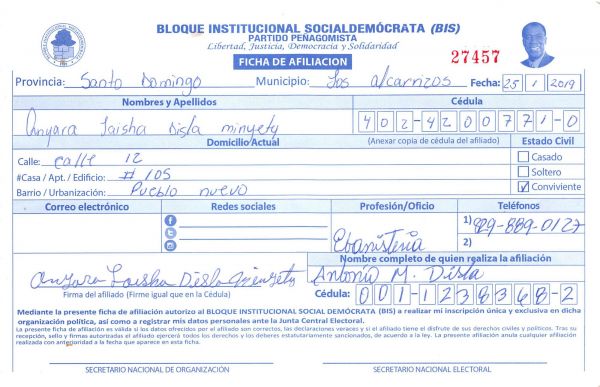 BLOQUE INSTITUCIONAL SOCIALDEMÓCRATA (BIS)
PARTIDO PEÑAGOMISTA
Libertad, Justicia, Democracia y Solidaridad
FICHA DE AFILIACION
27457
Provincia: Santo Domingo Municipio: Los alcarrizos Fecha: 25 1 2019
Nombres y Apellidos Cédula
Anyara Laisha Disla minyety 402-4200771-0
Domicilio Actual (Anexar copia de cédula del afiliado) Estado Civil
Calle: calle 12 Casado
#Casa / Apt. / Edificio: # 105 Soltero
Barrio / Urbanización: Pueblo nuevo Conviviente
Correo electrónico Redes sociales Profesión/Oficio Teléfonos
1) 829-889-0127
Ebanisteria 2)
Nombre completo de quien realiza la afiliación
Anyara Laisha Disla Minyety Antonia M. Disla
Firma del afiliado (Firme igual que en la Cédula) Cédula: 001-1238368-2
Mediante la presente ficha de afiliación autorizo al BLOQUE INSTITUCIONAL SOCIAL DEMÓCRATA (BIS) a realizar mi inscripción única y exclusiva en dicha
organización política, así como a registrar mis datos personales ante la Junta Central Electoral.
La presente ficha de afiliación es válida si los datos ofrecidos por el afiliado son correctos, las declaraciones veraces y si el afiliado tiene el disfrute de sus derechos civiles y políticos. Tras su
recepción, sello y firmas autorizadas el afiliado ejercerá todos los derechos y los deberes estatutariamente sancionados, de acuerdo a la ley. La presente afiliación anula cualquier afiliación
realizada con anterioridad a la fecha que aparece en esta ficha.
SECRETARIO NACIONAL DE ORGANIZACIÓN SECRETARIO NACIONAL ELECTORAL